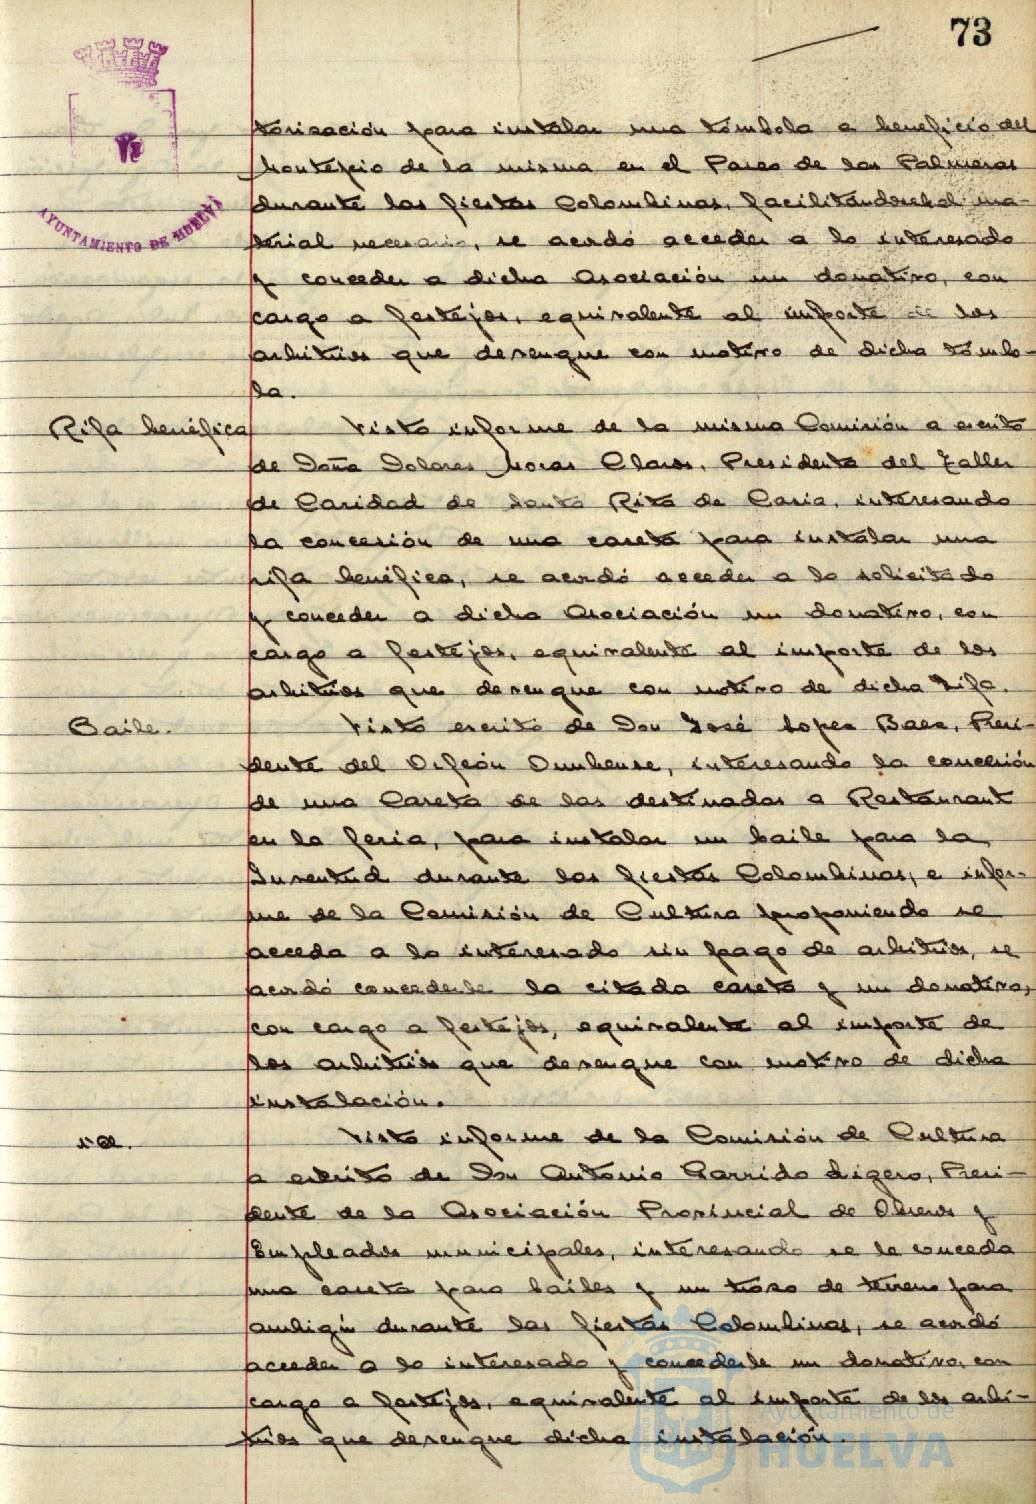 73
AYUNTAMIENTO DE HUELVA
torización para instalar una tómbola a beneficio del
Montepio de la misma en el Paseo de las Palmeras
durante las fiestas Colombinas, facilitándosele el ma-
terial necesario, se acordó acceder a lo interesado
y conceder a dicha Asociación un donativo, con
cargo a festejos, equivalente al importe de los
arbitrios que devengue con motivo de dicha tómbo-
la.
Rifa benéfica Visto informe de la misma Comisión a escrito
de Doña Dolores Moras Claros, Presidenta del Taller
de Caridad de Santa Rita de Casia, interesando
la concesión de una caseta para instalar una
rifa benéfica, se acordó acceder a lo solicitado
y conceder a dicha Asociación un donativo, con
cargo a festejos, equivalente al importe de los
arbitrios que devengue con motivo de dicha rifa.
Baile. Visto escrito de Don José Lopez Baez, Presi-
dente del Orfeón Onubense, interesando la concesión
de una Caseta de las destinadas a Restaurant
en la feria, para instalar un baile para la
Juventud durante las fiestas Colombinas, e infor-
me de la Comisión de Cultura proponiendo se
acceda a lo interesado sin pago de arbitrios, se
acordó concederle la citada caseta y un donativo,
con cargo a festejos, equivalente al importe de
los arbitrios que devengue con motivo de dicha
instalación.
id. Visto informe de la Comisión de Cultura
a escrito de Don Antonio Garrido Ligero, Presi-
dente de la Asociación Provincial de Obreros y
Empleados municipales, interesando se le conceda
una caseta para bailes y un trozo de terreno para
ambigú durante las fiestas Colombinas, se acordó
acceder a lo interesado y concederle un donativo, con
cargo a festejos, equivalente al importe de los arbi-
trios que devengue dicha instalación.
Ayuntamiento de
HUELVA